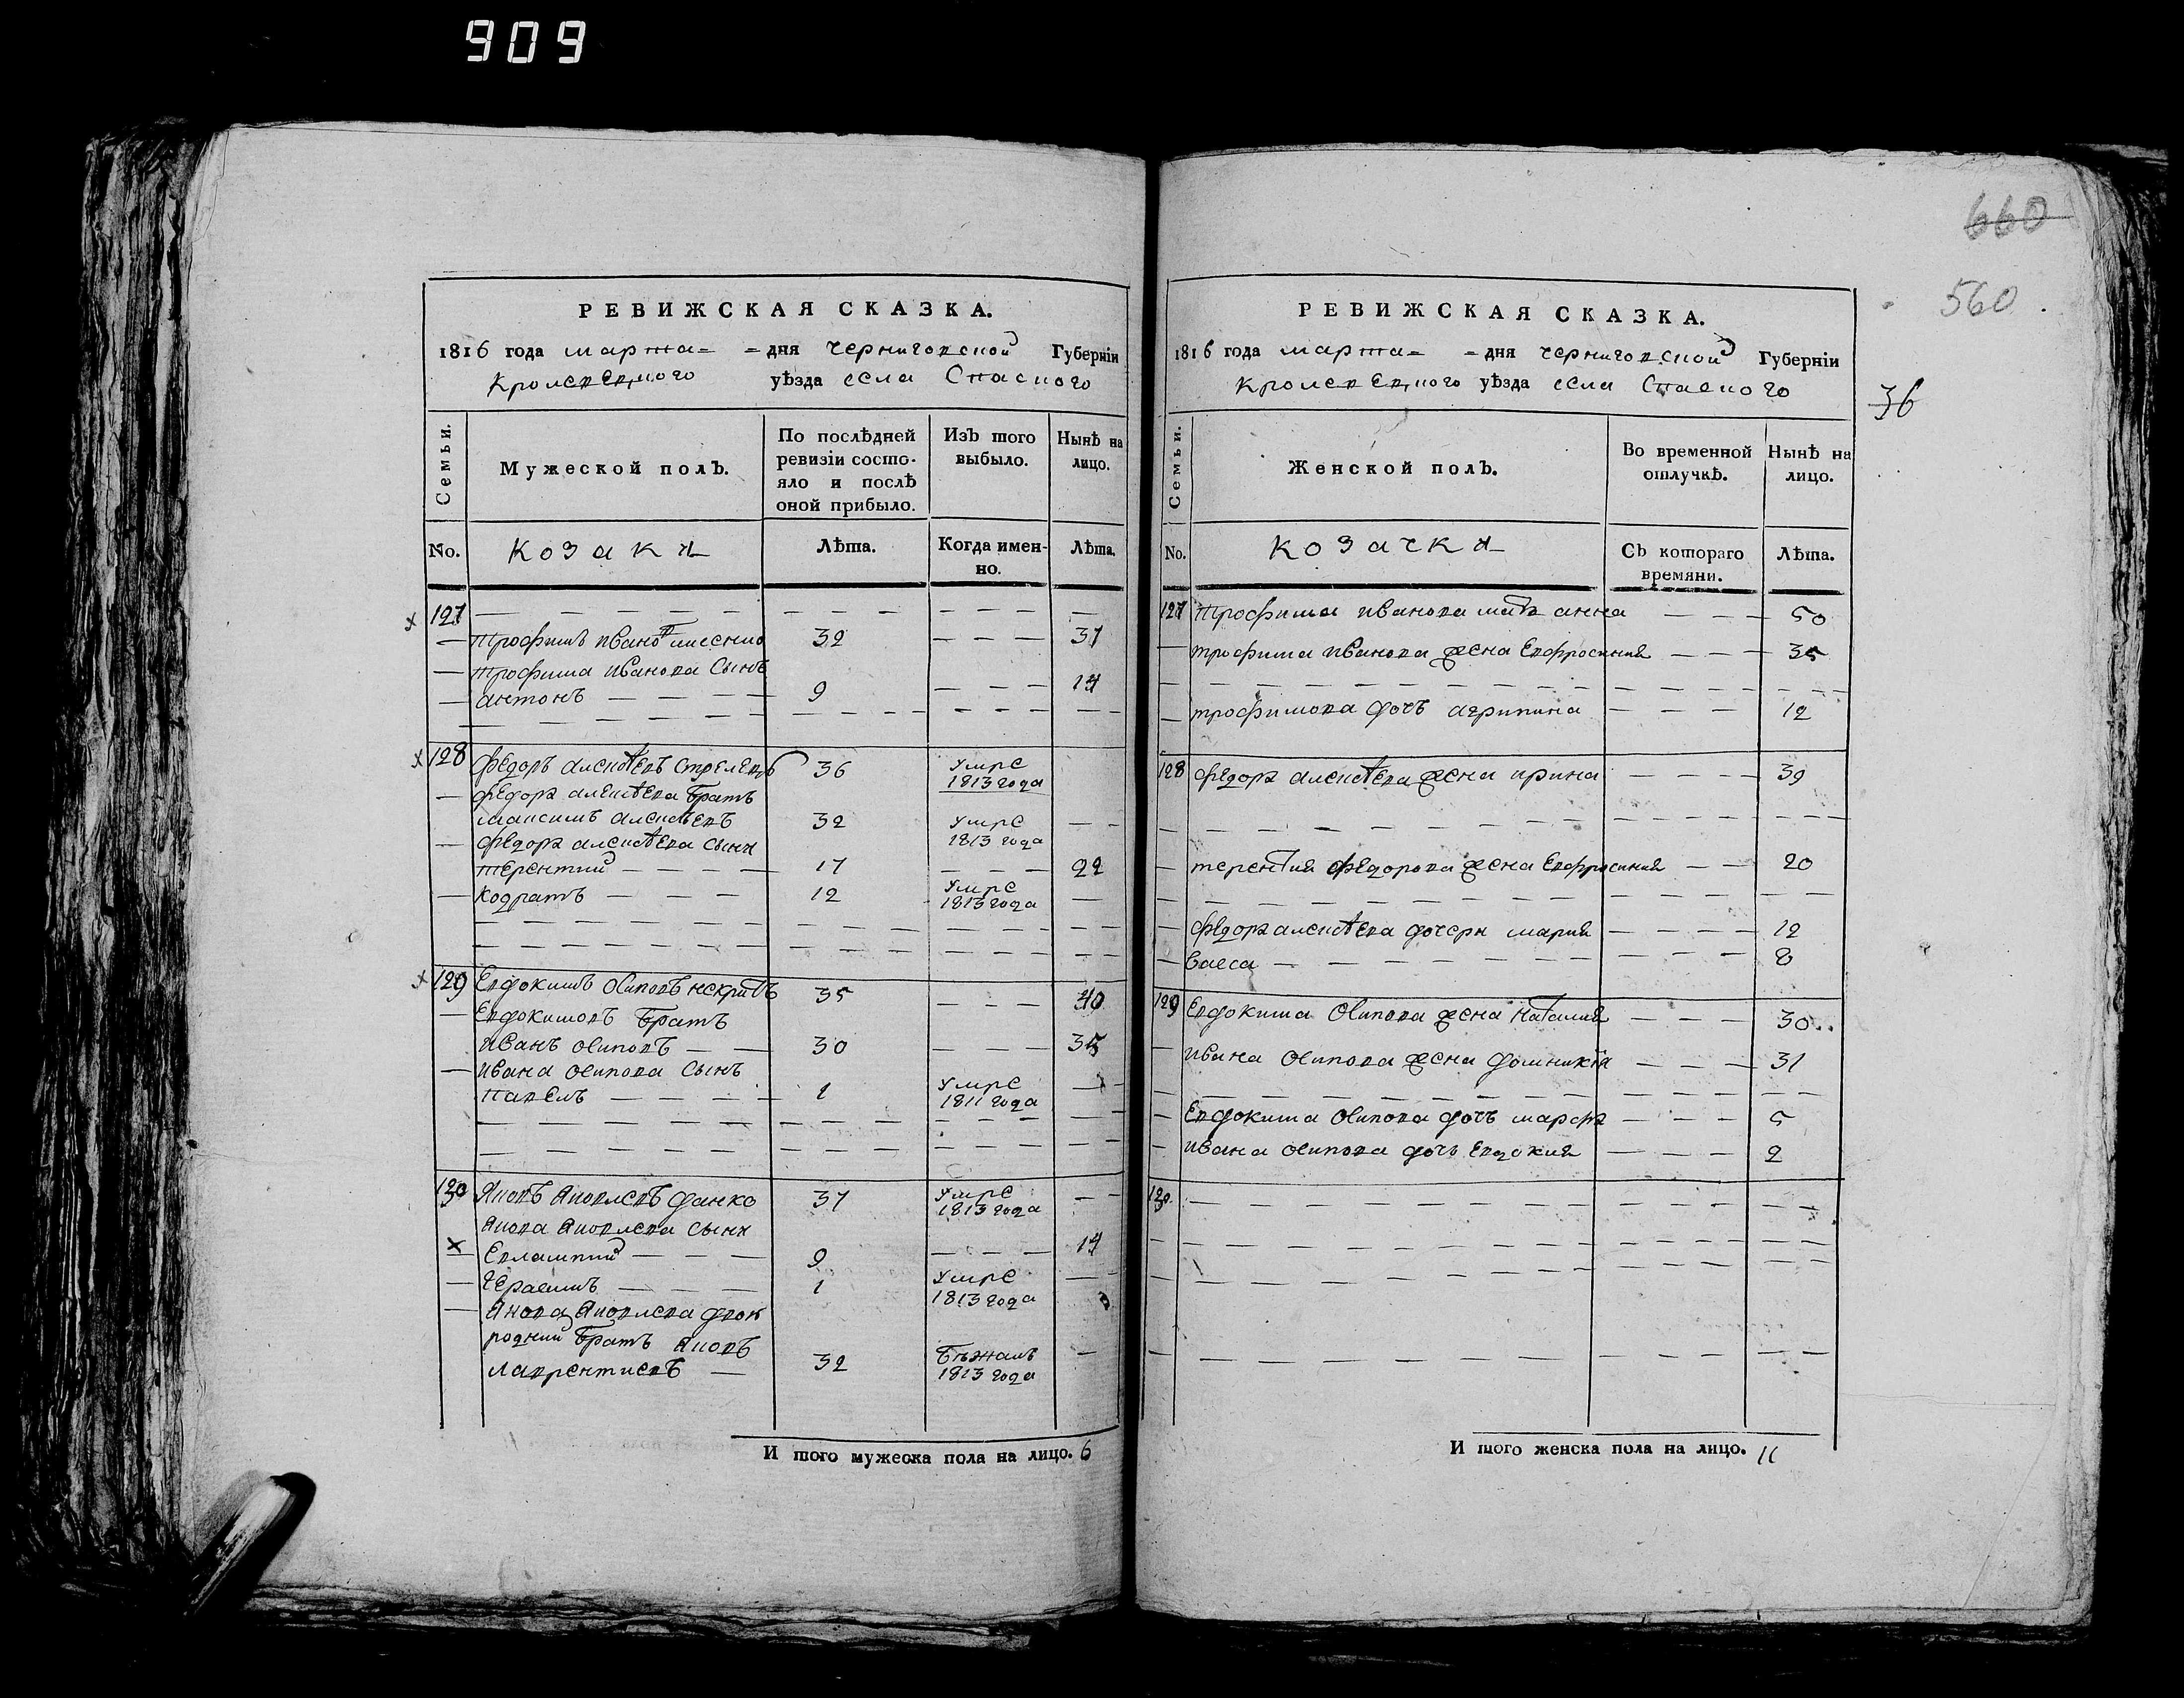 909
660
560
36
РЕВИЖСКАЯ СКАЗКА.
1816 года марта = = дня черниговской Губерніи
Кролевецкого уѣзда села Спаского
Семьи.
Мужеской полъ.
По послѣдней ревизіи состояло и послѣ оной прибыло.
Изъ того выбыло.
Нынѣ на лицо.
No.
козаки
Лѣта.
Когда именно.
Лѣта.
127 — — — — —
— трофимъ ивановъ 32 — — — 37
— трофима иванова сынъ
— антонъ — — — 9 — — — 14
128 федоръ алексѣевъ стрелецъ 36 умре 1813 года
— федора алексѣева братъ
максимъ алексѣевъ 32 умре 1813 года — —
— федора алексѣева сыни
терентий — — — 17 — — — 22
— кодратъ — — — 12 умре 1813 года —
129 Евдокимъ Осиповъ 35 — — — 40
— Евдокимовъ братъ
иванъ осиповъ — — 30 — — — 35
— ивана осипова сынъ
павелъ — — — 1 умре 1811 года — —
130 Яковъ Яковлевъ данко 37 умре 1813 года — —
Якова Яковлева сыни
— Евлампий — — — 9 — — — 14
— Герасимъ — — — 1 умре 1813 года — —
— Якова Яковлева двою
родний братъ Яковъ
лаврентиевъ — 32 бѣжалъ 1813 года —
И того мужеска пола на лицо. 6
РЕВИЖСКАЯ СКАЗКА.
1816 года марта = = дня черниговской Губерніи
Кролевецкого уѣзда села Спаского
Семьи.
Женской полъ.
Во временной отлучкѣ.
Нынѣ на лицо.
No.
козачки
Съ котораго времяни.
Лѣта.
127 трофима иванова мать анна — — — 50
— трофима иванова жена Евфросиния — — — 35
— трофимова дочъ агрипина — — — 12
128 федора алексѣева жена ирина — — — 39
— терентия федорова жена Евфросиния — — 20
— федора алексѣева дочери мария — — — — 12
— васса — — — 8
129 Евдокима Осипова жена Наталия — — — 30
— ивана осипова жена домникія — — — 31
— Евдокима Осипова дочъ марфа — — — 5
— ивана осипова дочъ Евдокия — — — 2
130 — — — — —
И того женска пола на лицо. 11